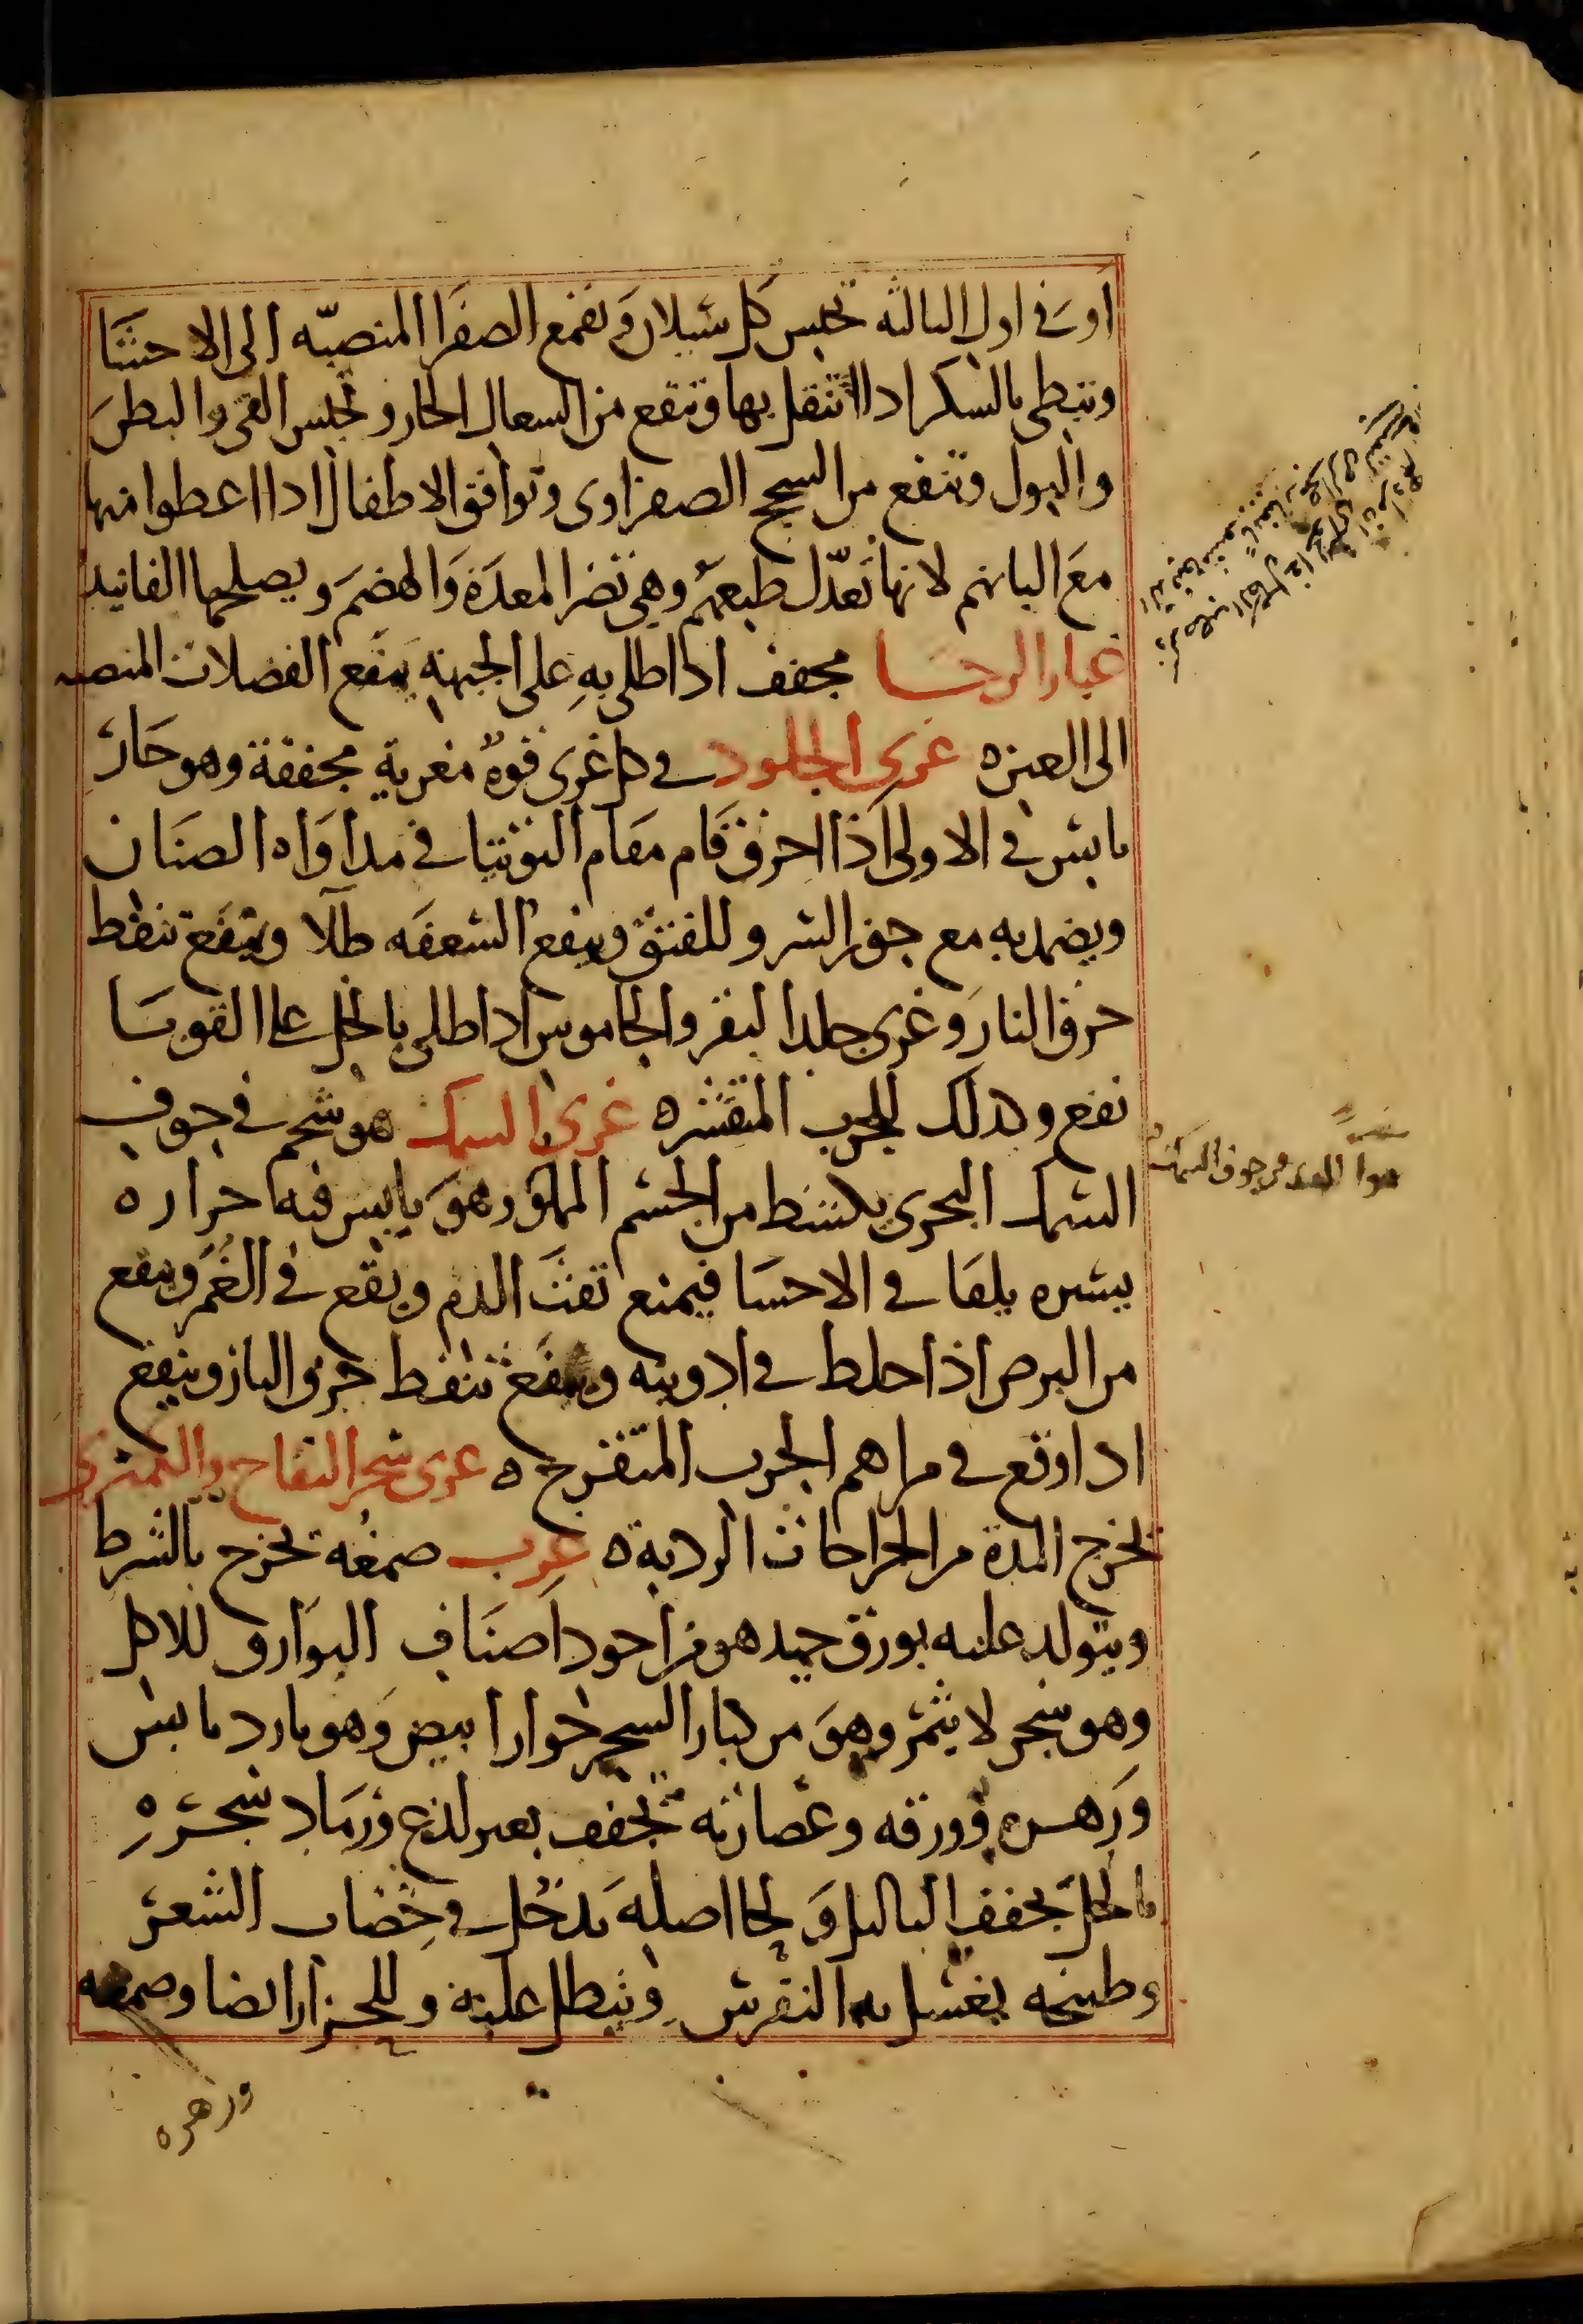 او فى اول الثالثه تحبس كل سيلان وتقمع الصفرا المنصبّه الى الاحشا
وتبطى بالسكر اذا تنقل بها وتنفع من السعال الحار وتحبس القى والبطن
والبول وتنفع من السحج الصفراوى وتوافق الاطفال اذا اعطوا منها
مع البانهم لانها تعدّل طبعهم وهى تضر المعدة والهضم ويصلحها الفانيد
غبار الرحا مجفف اذا طلى به على الجبهة يمنع الفضلات المنصبه
الى العين ه غرى الجلود فى كل غرى قوة مغرية مجففة وهو حار
يابس فى الاولى اذا احرق قام مقام التوتيا فى مداواه الصنان
ويضمد به مع جوز السرو للفتق وينفع السعفه طلا ويمنع تنفط
حرق النار وغرى جلد البقر والجاموس اذا طلى بالخل على القوبا
نفع وكذلك للجرب المتقشره غرى السمك هو شحم فى جوف
السمك البحرى يكشط من الجسم وهو يابس فيه حراره
يسيره يلقا فى الاحسا فيمنع نفث الدم ويقع فى الغمر وينفع
من البرص اذا خلط فى ادويته ويمنع تنفط حرق النار وينفع
اذا وقع فى مراهم الجرب المتقرح ه غرى شجر التفاح والكمثرى
تخرج المدة من الجراحات الرديه ه غرب صمغه تخرج بالشرط
ويتولد عليه بورق جيد هو من اجود اصناف البوارق للاكل
وهو شجر لا يثمر وهو من كبار الشجر خوار ابيض وهو بارد يابس
وزهره وورقه وعصارته تجفف بغير لذع ورماد شجره
بالخل يجفف الثاليل ولحا اصله يدخل فى خضاب الشعر
وطبيخه يغسل به النقرس وينطل عليه وللحزاز ايضا وصمغه
وزهره
هوا فى جوف السمك